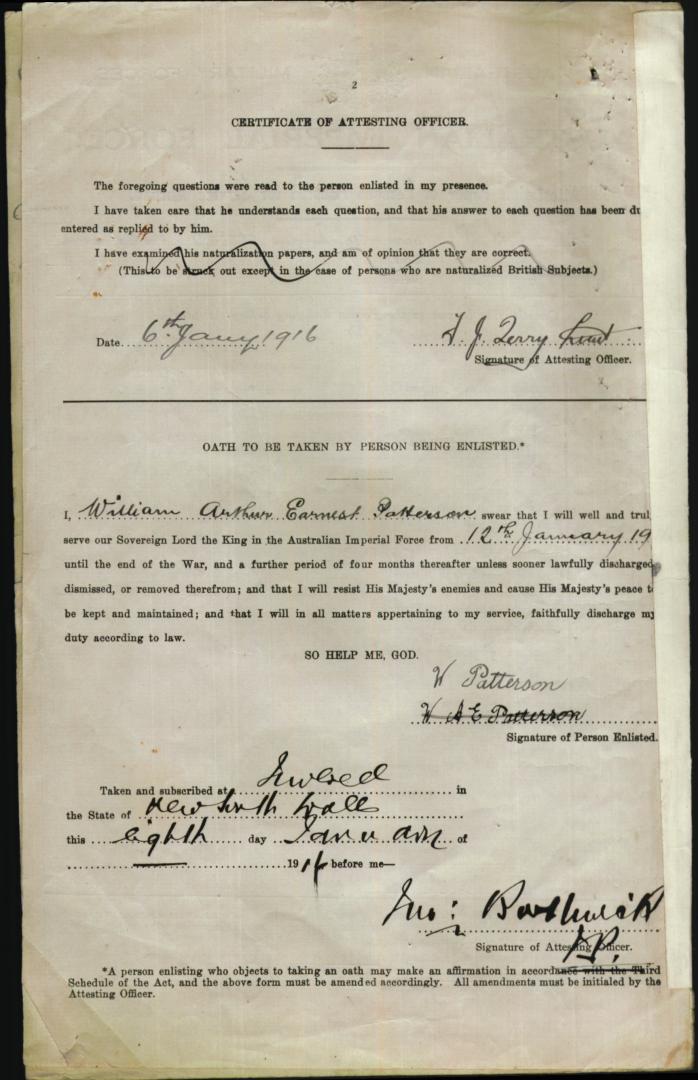 2
CERTIFICATE OF ATTESTING OFFICER.
The foregoing questions were read to the person enlisted in my presence.
I have taken care that he understands each question, and that his answer to each question has been du
entered as replied to by him.
I have examined his naturalization papers, and am of opinion that they are correct.
(This to be struck out except in the case of persons who are naturalized British Subjects.)
Date 6th Jany 1916 J. Terry Lieut
Signature of Attesting Officer.
OATH TO BE TAKEN BY PERSON BEING ENLISTED.*
I, William Arthur Earnest Patterson swear that I will well and trul
serve our Sovereign Lord the King in the Australian Imperial Force from 12th January 19
until the end of the War, and a further period of four months thereafter unless sooner lawfully discharged
dismissed, or removed therefrom; and that I will resist His Majesty's enemies and cause His Majesty's peace t
be kept and maintained; and that I will in all matters appertaining to my service, faithfully discharge my
duty according to law.
SO HELP ME, GOD.
W Patterson
W A E Patterson
Signature of Person Enlisted.
Taken and subscribed at Inverell in
the State of New South Wales
this eighth day January of
1916 before me—
Jno: Borthwick
J.P.
Signature of Attesting Officer.
*A person enlisting who objects to taking an oath may make an affirmation in accordance with the Third
Schedule of the Act, and the above form must be amended accordingly. All amendments must be initialed by the
Attesting Officer.